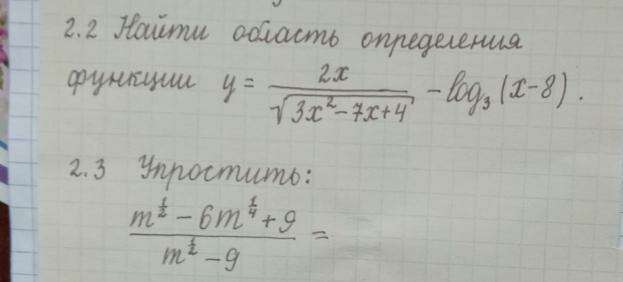 2.2 Найти область определения
функции y = 2x / √(3x² - 7x + 4) - log₃(x-8).
2.3 Упростить:
(m^(1/2) - 6m^(1/4) + 9) / (m^(1/2) - 9) =